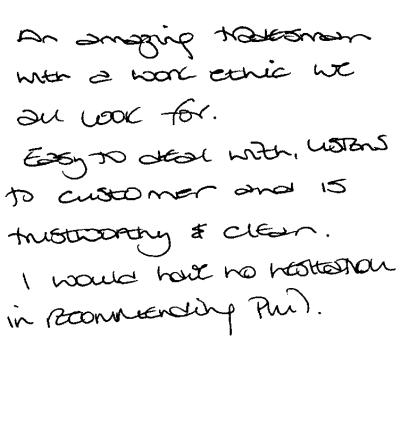 An amazing tradesman
with a work ethic we
all look for.
Easy to deal with, listens
to customer and is
trustworthy & clean.
I would have no hesitation
in recommending Phil.